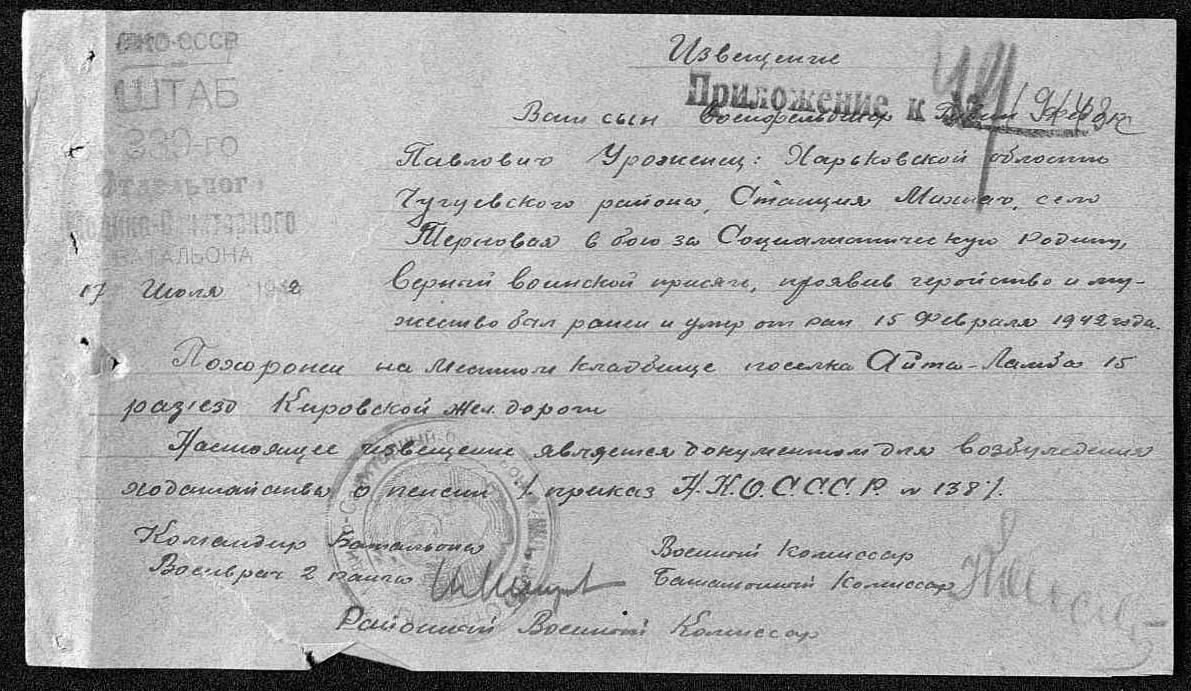 НКО-СССР
ШТАБ
330-го
Отдельного
Медико-Санитарного
БАТАЛЬОНА
17 Июля 1942
Извещение
Приложение к
Ваш сын Военфельдшер
Павлович Уроженец: Харьковской области
Чугуевского района, Станция село
Терновая в бою за Социалистическую Родину,
верный воинской присяге, проявив геройство и му-
жество был ранен и умер от ран 15 Февраля 1942 года.
Похоронен на Местном кладбище поселка Айта-Ламба 15
раз'езд Кировской жел. дороги
Настоящее извещение является документом для возбуждения
ходатайства о пенсии /. приказ Н.К.О.С.С.С.Р. № 138/.
Командир Батальона
Военврач 2 ранга
Военный Комиссар
Батальонный Комиссар
Районный Военный Комиссар